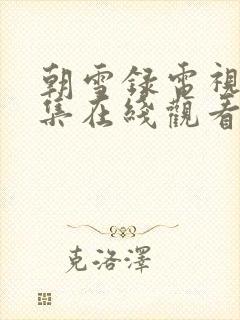 朝雪録電視
集在綫觀看
克洛澤